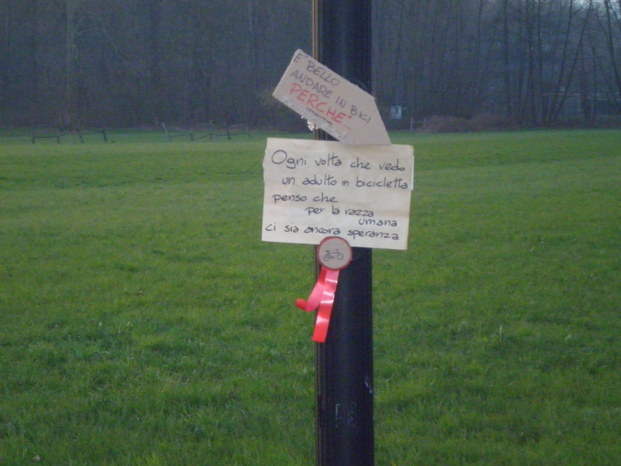 È BELLO
ANDARE IN BICI
PERCHÈ
Ogni volta che vedo
un adulto in bicicletta
penso che
per la razza
umana
ci sia ancora speranza